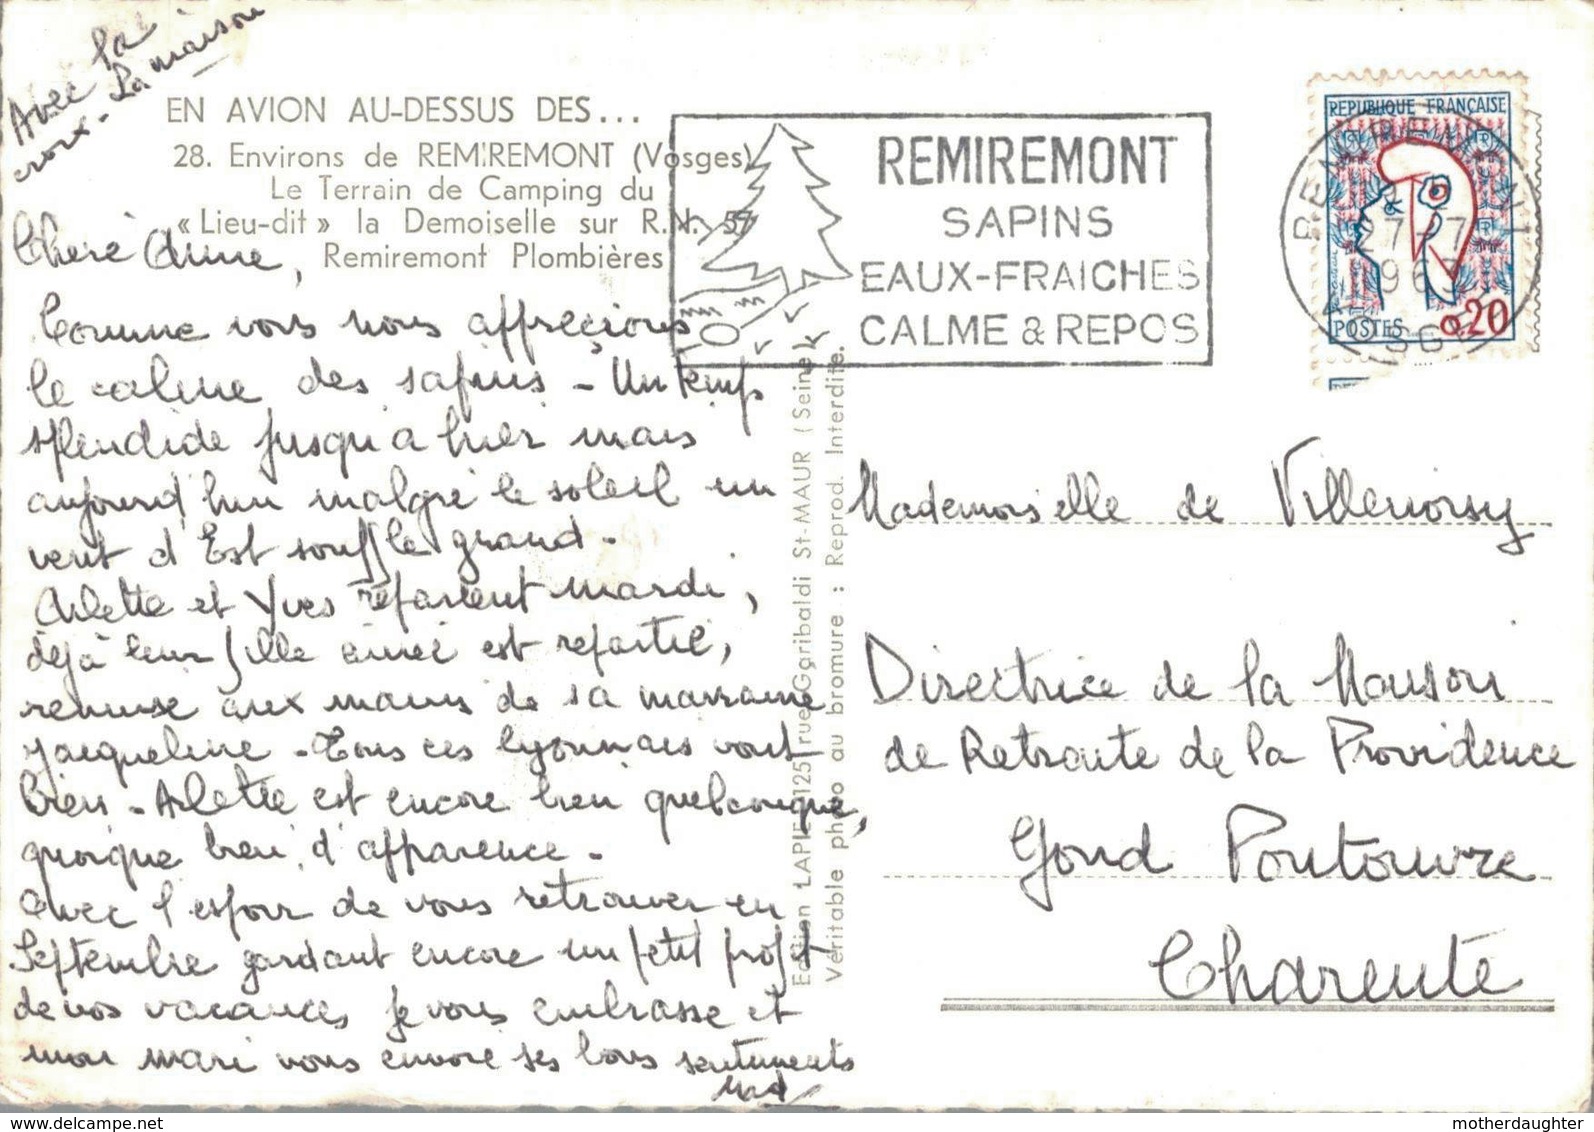 Avec la
croix - La maison
EN AVION AU-DESSUS DES...
28. Environs de REMIREMONT (Vosges)
Le Terrain de Camping du
« Lieu-dit » la Demoiselle sur R.N. 57
Remiremont Plombières
Chère Anne,
Comme vous nous apprécions
le calme des sapins - Un temps
splendide jusqu'a hier mais
aujourd'hui malgré le soleil un
vent d'Est souffle grand.
Arlette et Yves repartent mardi,
déjà leur fille ainée est repartie,
remise aux mains de sa marraine
Jacqueline - Tous ces lyonnais vont
bien - Arlette est encore bien quelconque,
quoique bien d'apparence -
Avec l'espoir de vous retrouver en
Septembre gardant encore un petit profit
de vos vacances je vous embrasse et
mon mari vous envoie ses bons sentiments
REMIREMONT
SAPINS
EAUX-FRAICHES
CALME & REPOS
REPUBLIQUE FRANÇAISE
POSTES 0,20
27-7
196
Edition LAPIE 125, rue Garibaldi St-MAUR (Seine).
Véritable photo au bromure : Reprod. Interdite.
Mademoiselle de Villenoisy
Directrice de la Maison
de Retraite de la Providence
Gond Pontouvre
Charente
motherdaughter